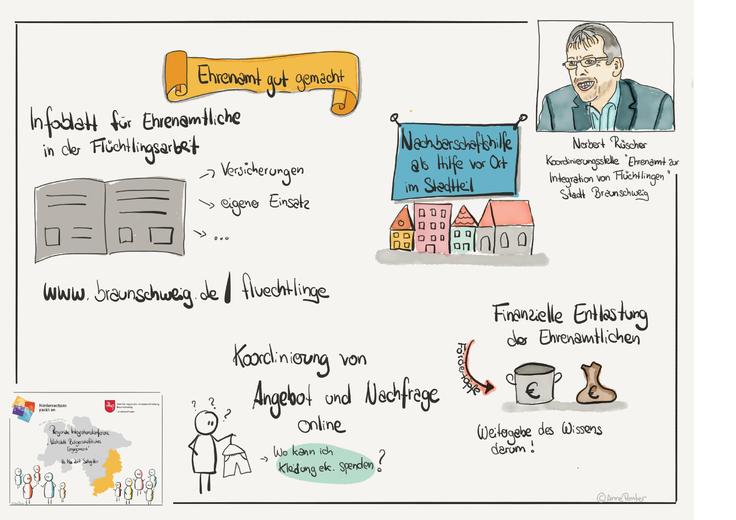 Ehrenamt gut gemacht
Infoblatt für Ehrenamtliche
in der Flüchtlingsarbeit
→ Versicherungen
→ eigener Einsatz
→ ...
www.braunschweig.de/fluechtlinge
Nachbarschaftshilfe
als Hilfe vor Ort
im Stadtteil
Norbert Rüscher
Koordinierungsstelle "Ehrenamt zur
Integration von Flüchtlingen"
Stadt Braunschweig
Finanzielle Entlastung
der Ehrenamtlichen
Fördertöpfe
€ €
Weitergabe des Wissens
darum!
Koordinierung von
Angebot und Nachfrage
online
? ? ?
→ Wo kann ich
Kleidung etc. spenden?
Niedersachsen
packt an
Regionale Integrationskonferenz
Engagement"
©